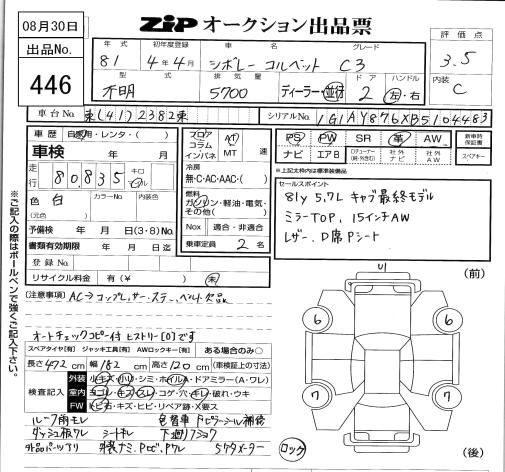 08月30日
出品No.
446
ZIP オークション出品票
評価点
3.5
内装
C
年式
81
初年度登録
4年4月
車名
シボレー コルベット
グレード
C3
型式
不明
排気量
5700
ディーラー・並行
ドア
2
ハンドル
左・右
車台No.
東(41)2382東
シリアルNo.
1G1AY876XB5104483
車歴 自家用・レンタ・( )
車検 年 月
走行
80,835
キロ
マイル
色 白
(元色)
カラーNo.
内装色
予備検 年 月 日(3・8)No.
書類有効期限 年 月 日迄
登録No.
リサイクル料金 有(¥ ) 未
フロア
コラム
インパネ
AT
MT
速
冷房
無・C・AC・AAC・( )
燃料
ガソリン・軽油・電気・
その他( )
Nox 適合・非適合
乗車定員 2 名
PS PW SR 革 AW
ナビ エアB 社外ナビ 社外AW
新車時保証書
スペアキー
※上記太枠内は標準装備品
セールスポイント
81y 5.7L キャブ最終モデル
ミラーTOP, 15インチAW
レザー, D席Pシート
[注意事項] AC→コンプレッサー.ステー,ベルト欠品
オートチェックコピー付 ヒストリー[0]です
スペアタイヤ[有] ジャッキ工具[有] AWロックキー[有] ある場合のみ○
長さ 472 cm 幅 182 cm 高さ 120 cm (車検証上の寸法)
検査記入
外装 小キズ・小凹・シミ・ホイル・ドアミラー(A・ワレ)
室内 ヨゴレ・キズ・スレ・コゲ・穴・キレ・破れ・ウキ
FW トビ石・キズ・ヒビ・リペア跡・X要ス
ルーフ雨モレ 色替車
ダッシュ板ワレ シートキレ
5ケタメーター
ロック
※ご記入の際はボールペンで強くご記入下さい。
(前)
6 6
7 7
(後)